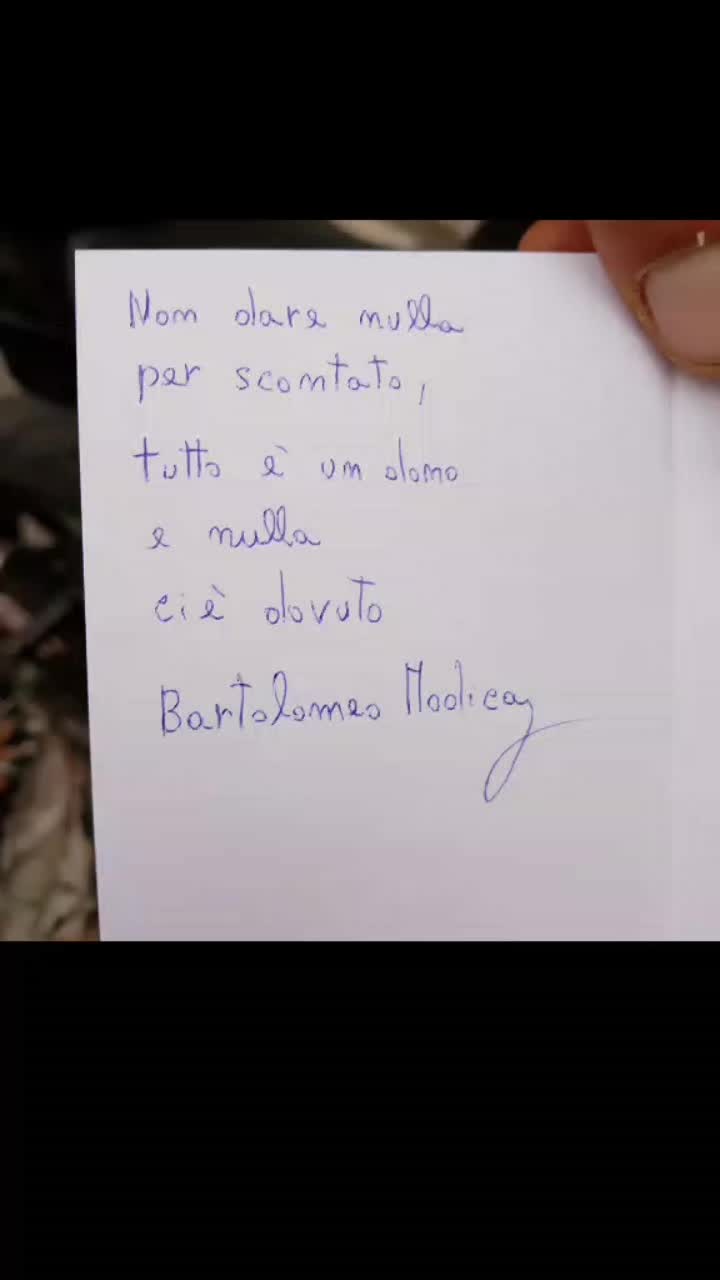 Non dare nulla
per scontato,
tutto è un dono
e nulla
ci è dovuto
Bartolomeo Modica